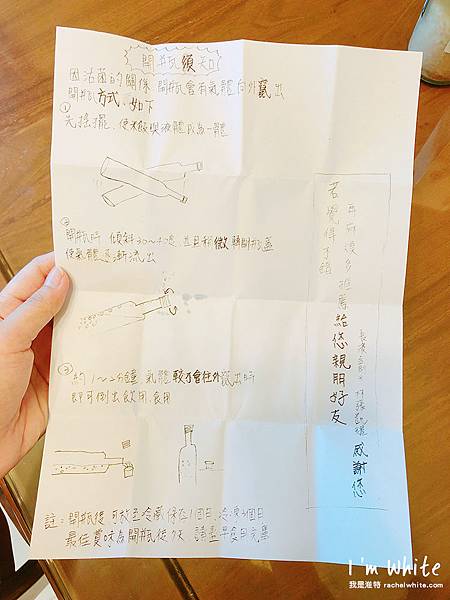 開瓶須知
因活菌的關係 開瓶會有氣體向外竄出
開瓶方式 如下
①
先搖擺、使米飯與液體成為一體
②
開瓶時 傾斜30~45度 並且稍微轉開瓶蓋
使氣體逐漸流出
③
約1~2分鐘 氣體較不會往外竄出時
即可倒出飲用、食用
註：開瓶後 可放至冷藏保存1個月、冷凍3個月
最佳賞味為開瓶後7天 請盡早食用完畢
若覺得好喝
再麻煩多推薦給您親朋好友
感謝您
I'm White
我是淮特 rachelwhite.com